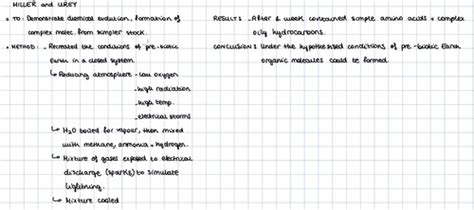 MILLER and UREY
• TO: Demonstrate chemical evolution, formation of
complex molec. from simpler stock.
• METHOD: - Recreated the conditions of pre-biotic
Earth in a closed system
↳ Reducing atmosphere - low oxygen
- high radiation
- high temp.
- electrical storms
↳ H₂O boiled for vapour, then mixed
with methane, ammonia + hydrogen.
↳ Mixture of gases exposed to electrical
discharge (sparks) to simulate
lightning.
↳ Mixture cooled
RESULTS: - After a week contained simple amino acids + complex
oily hydrocarbons.
CONCLUSIONS: Under the hypothesised conditions of pre-biotic Earth
organic molecules could be formed.